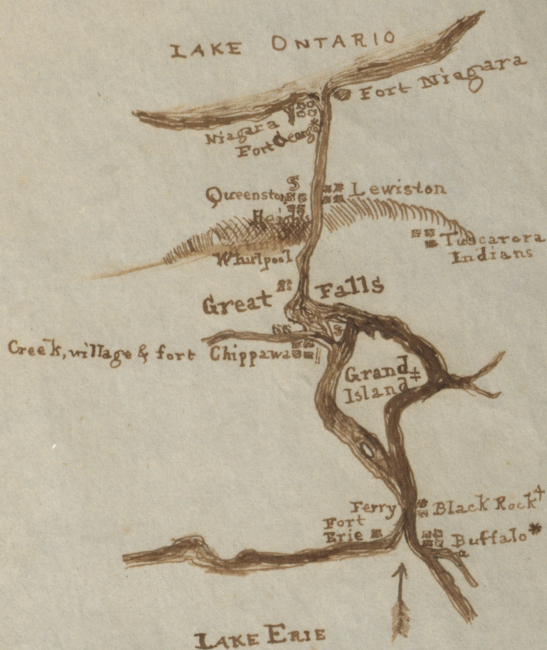 LAKE ONTARIO
Fort Niagara
Niagara
Fort George
Queenston
Lewiston
Heights
Tuscarora
Indians
Whirlpool
Great Falls
Creek, village & fort Chippawa
Grand
Island
Ferry
Black Rock
Fort
Erie
Buffalo*
LAKE ERIE